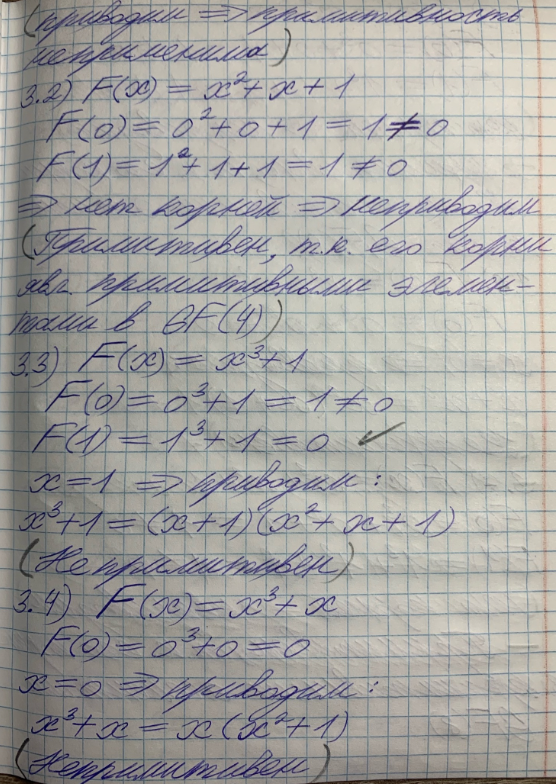 (приводим ⇒ примитивность
неприменима)
3.2) F(x) = x² + x + 1
F(0) = 0² + 0 + 1 = 1 ≠ 0
F(1) = 1² + 1 + 1 = 1 ≠ 0
⇒ нет корней ⇒ неприводим
(Примитивен, т.к. его корни
явл. примитивными элемен-
тами в GF(4))
3.3) F(x) = x³ + 1
F(0) = 0³ + 1 = 1 ≠ 0
F(1) = 1³ + 1 = 0 ✓
x = 1 ⇒ приводим:
x³ + 1 = (x + 1)(x² + x + 1)
(Непримитивен)
3.4) F(x) = x³ + x
F(0) = 0³ + 0 = 0
x = 0 ⇒ приводим:
x³ + x = x(x² + 1)
(Непримитивен)